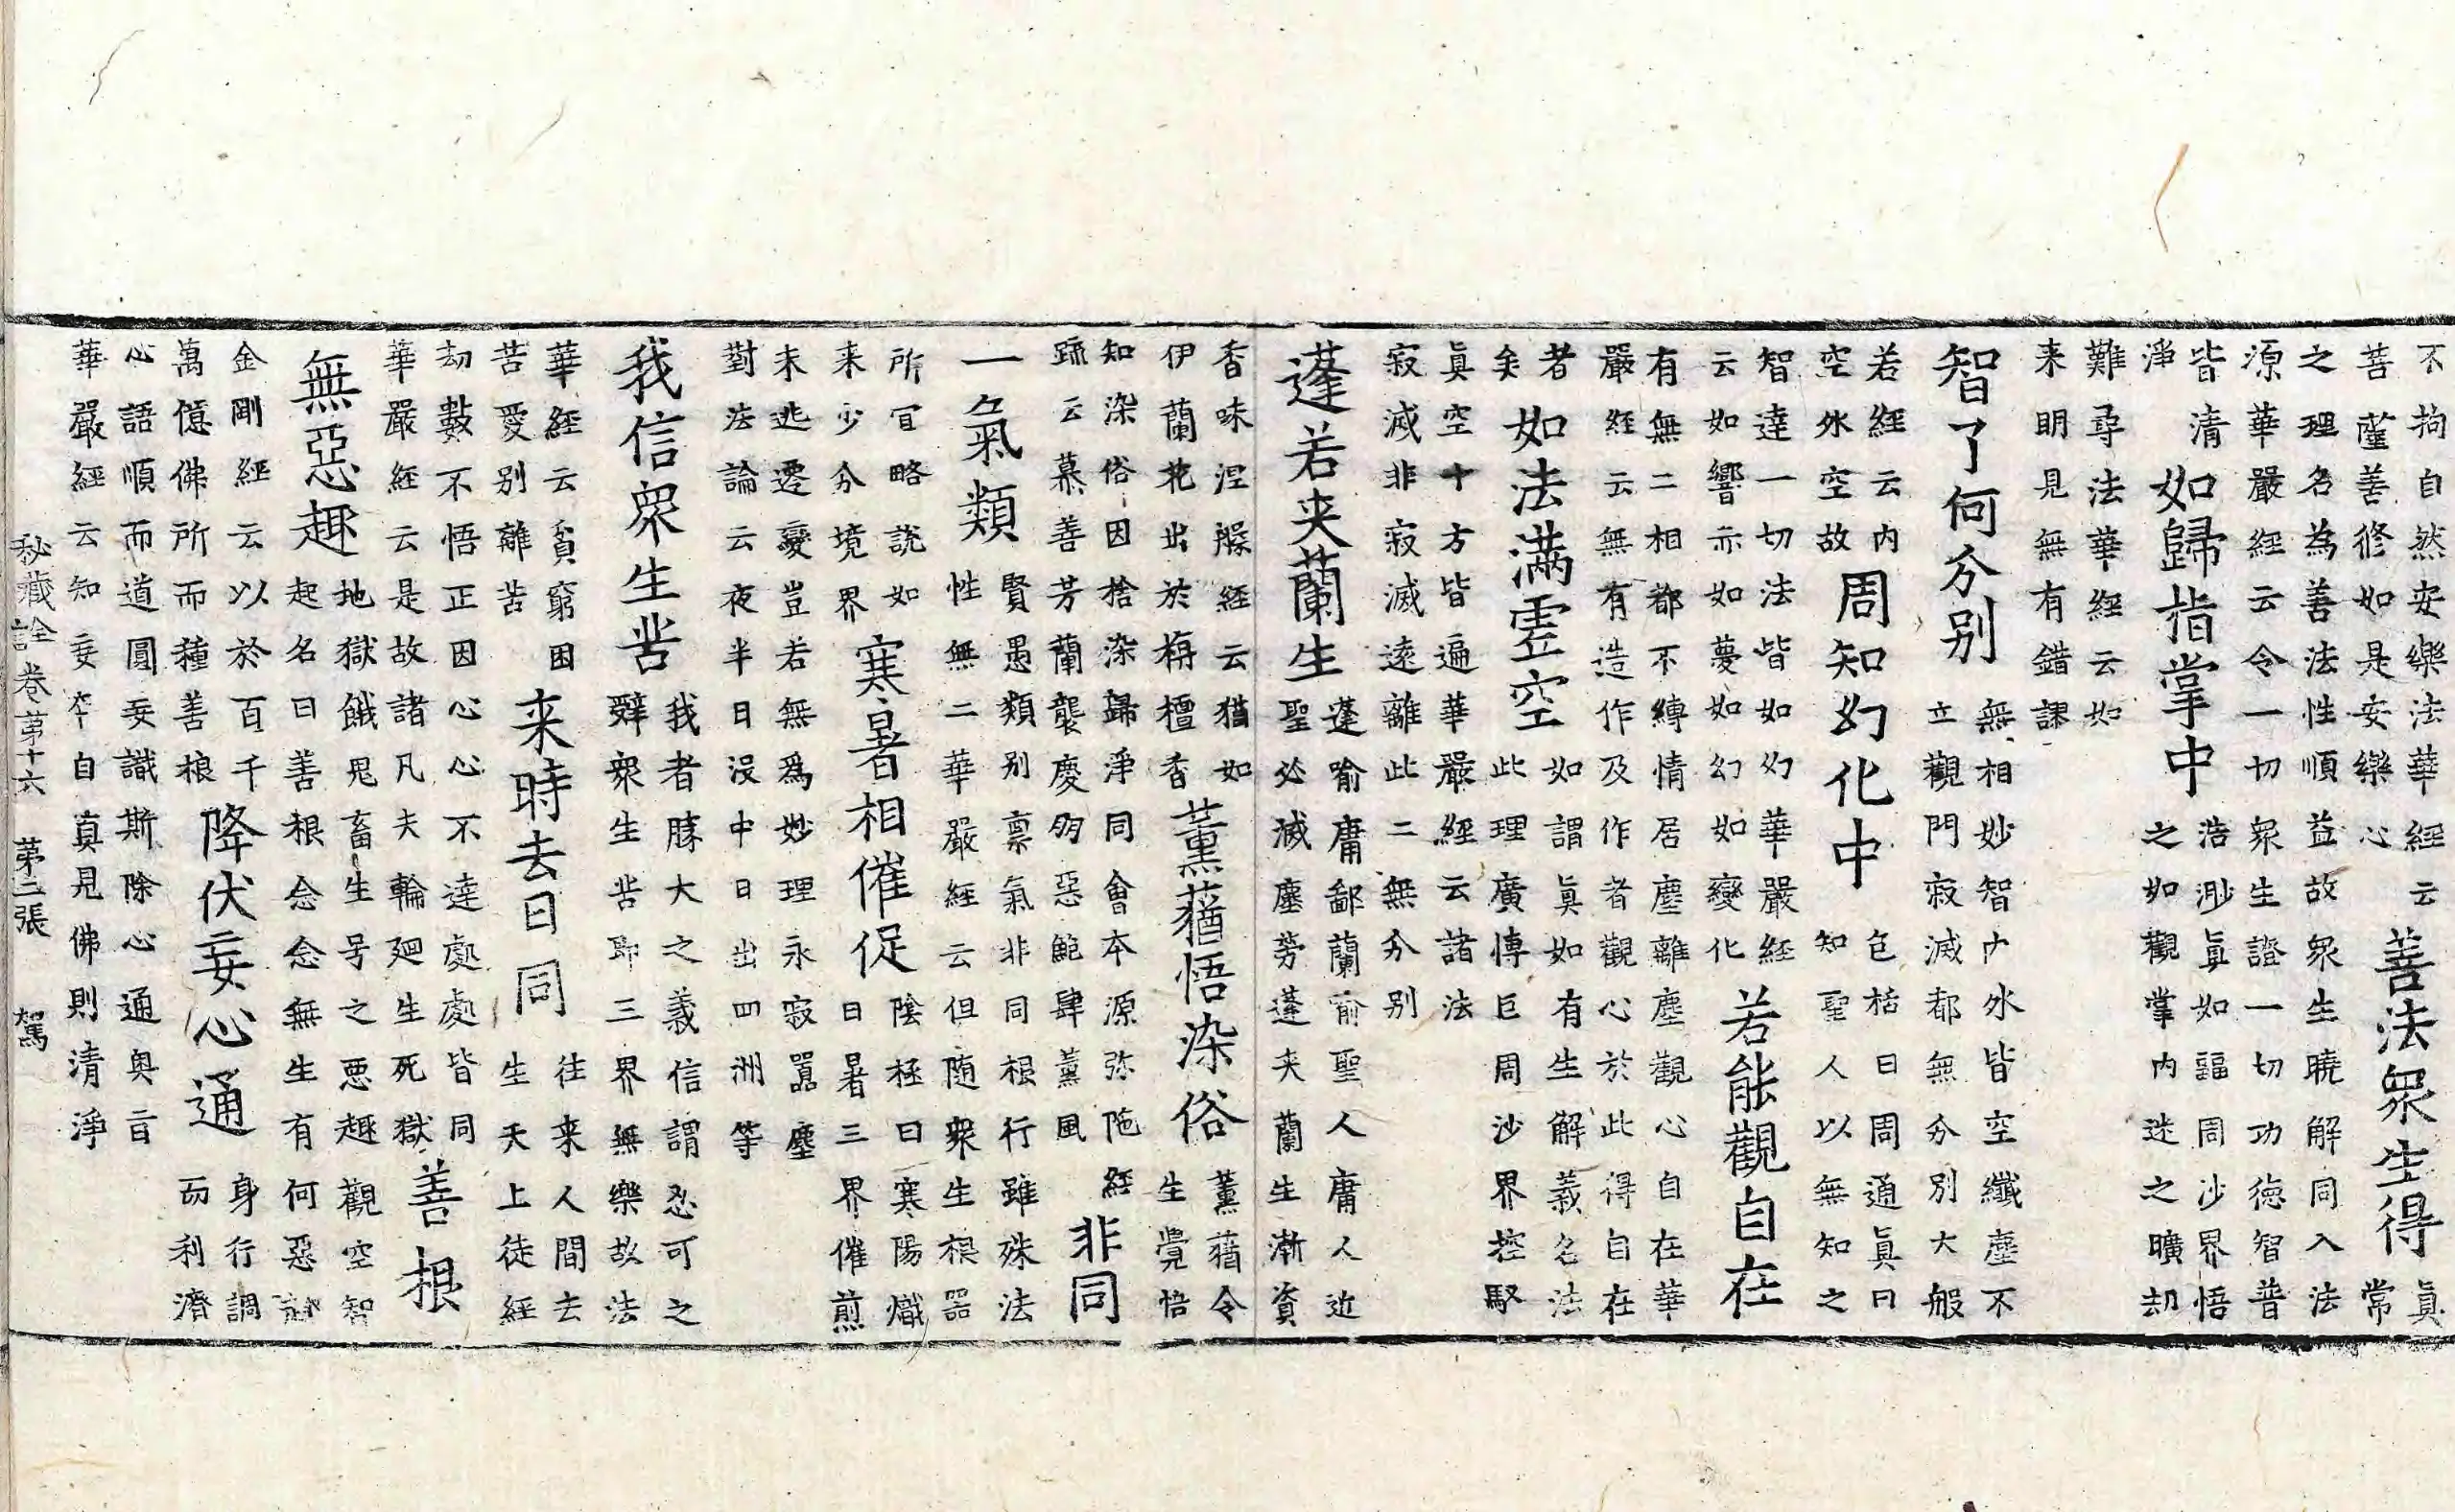 不拘自然安樂法華經云
菩薩善修如是安樂心
善法衆生得
眞
常
之理名為善法性順益故衆生曉解同入法
源華嚴經云令一切衆生證一切功徳智普
皆清
淨
如歸指掌中
浩渺眞如諨周沙界悟
之如觀掌内迷之曠劫
難尋法華經云如
来明見無有錯謬
智了何分别
無相妙智内外皆空纎塵不
立觀門寂滅都無分别大般
若經云内
空外空故
周知幻化中
包栝曰周通眞曰
知聖人以無知之
智達一切法皆如幻華嚴經
云如響亦如夢如幻如變化
若能觀自在
有無二相都不縛情居塵離塵觀心自在華
嚴經云無有造作及作者觀心於此得自在
者
矣
如法満虛空
如謂眞如有生解義名法
此理廣博巨周沙界控馭
眞空十方皆遍華嚴經云諸法
寂滅非寂滅遠離此二無分别
蓬若夾蘭生
蓬喻庸鄙蘭喻聖人庸人近
聖必滅塵勞蓬夾蘭生漸資
香味涅槃經云猶如
伊蘭花出於栴檀香
薰蕕悟染俗
薰蕕令
生覺悟
知染俗因捨染歸淨同會本源弥陁經
疏云慕善芳蘭襲慶朋惡鮑肆薰風
非同
一氣類
賢愚類别禀氣非同根行雖殊法
性無二華嚴經云但随衆生根器
所宜略說如
来少分境界
寒暑相催促
陰極曰寒陽熾
曰暑三界催煎
未逃遷變豈若無爲妙理永寂囂塵
對法論云夜半日沒中日出四洲等
我信衆生苦
我者勝大之義信謂忍可之
辤衆生苦即三界無樂故法
華經云貧窮困
苦愛别離苦
来時去日同
往来人間去
生天上徒經
劫數不悟正因心心不達處處皆同
華嚴經云是故諸凡夫輪廻生死獄
善根
無惡趣
地獄餓鬼畜生号之悪趣觀空智
起名曰善根念念無生有何惡趣
金剛經云以於百千
萬億佛所而種善根
降伏妄心通
身行調
而利濟
心語順而道圓妄識斯除心通奥旨
華嚴經云知妄夲自真見佛則清淨
秘藏詮卷第十六 第二張 駕